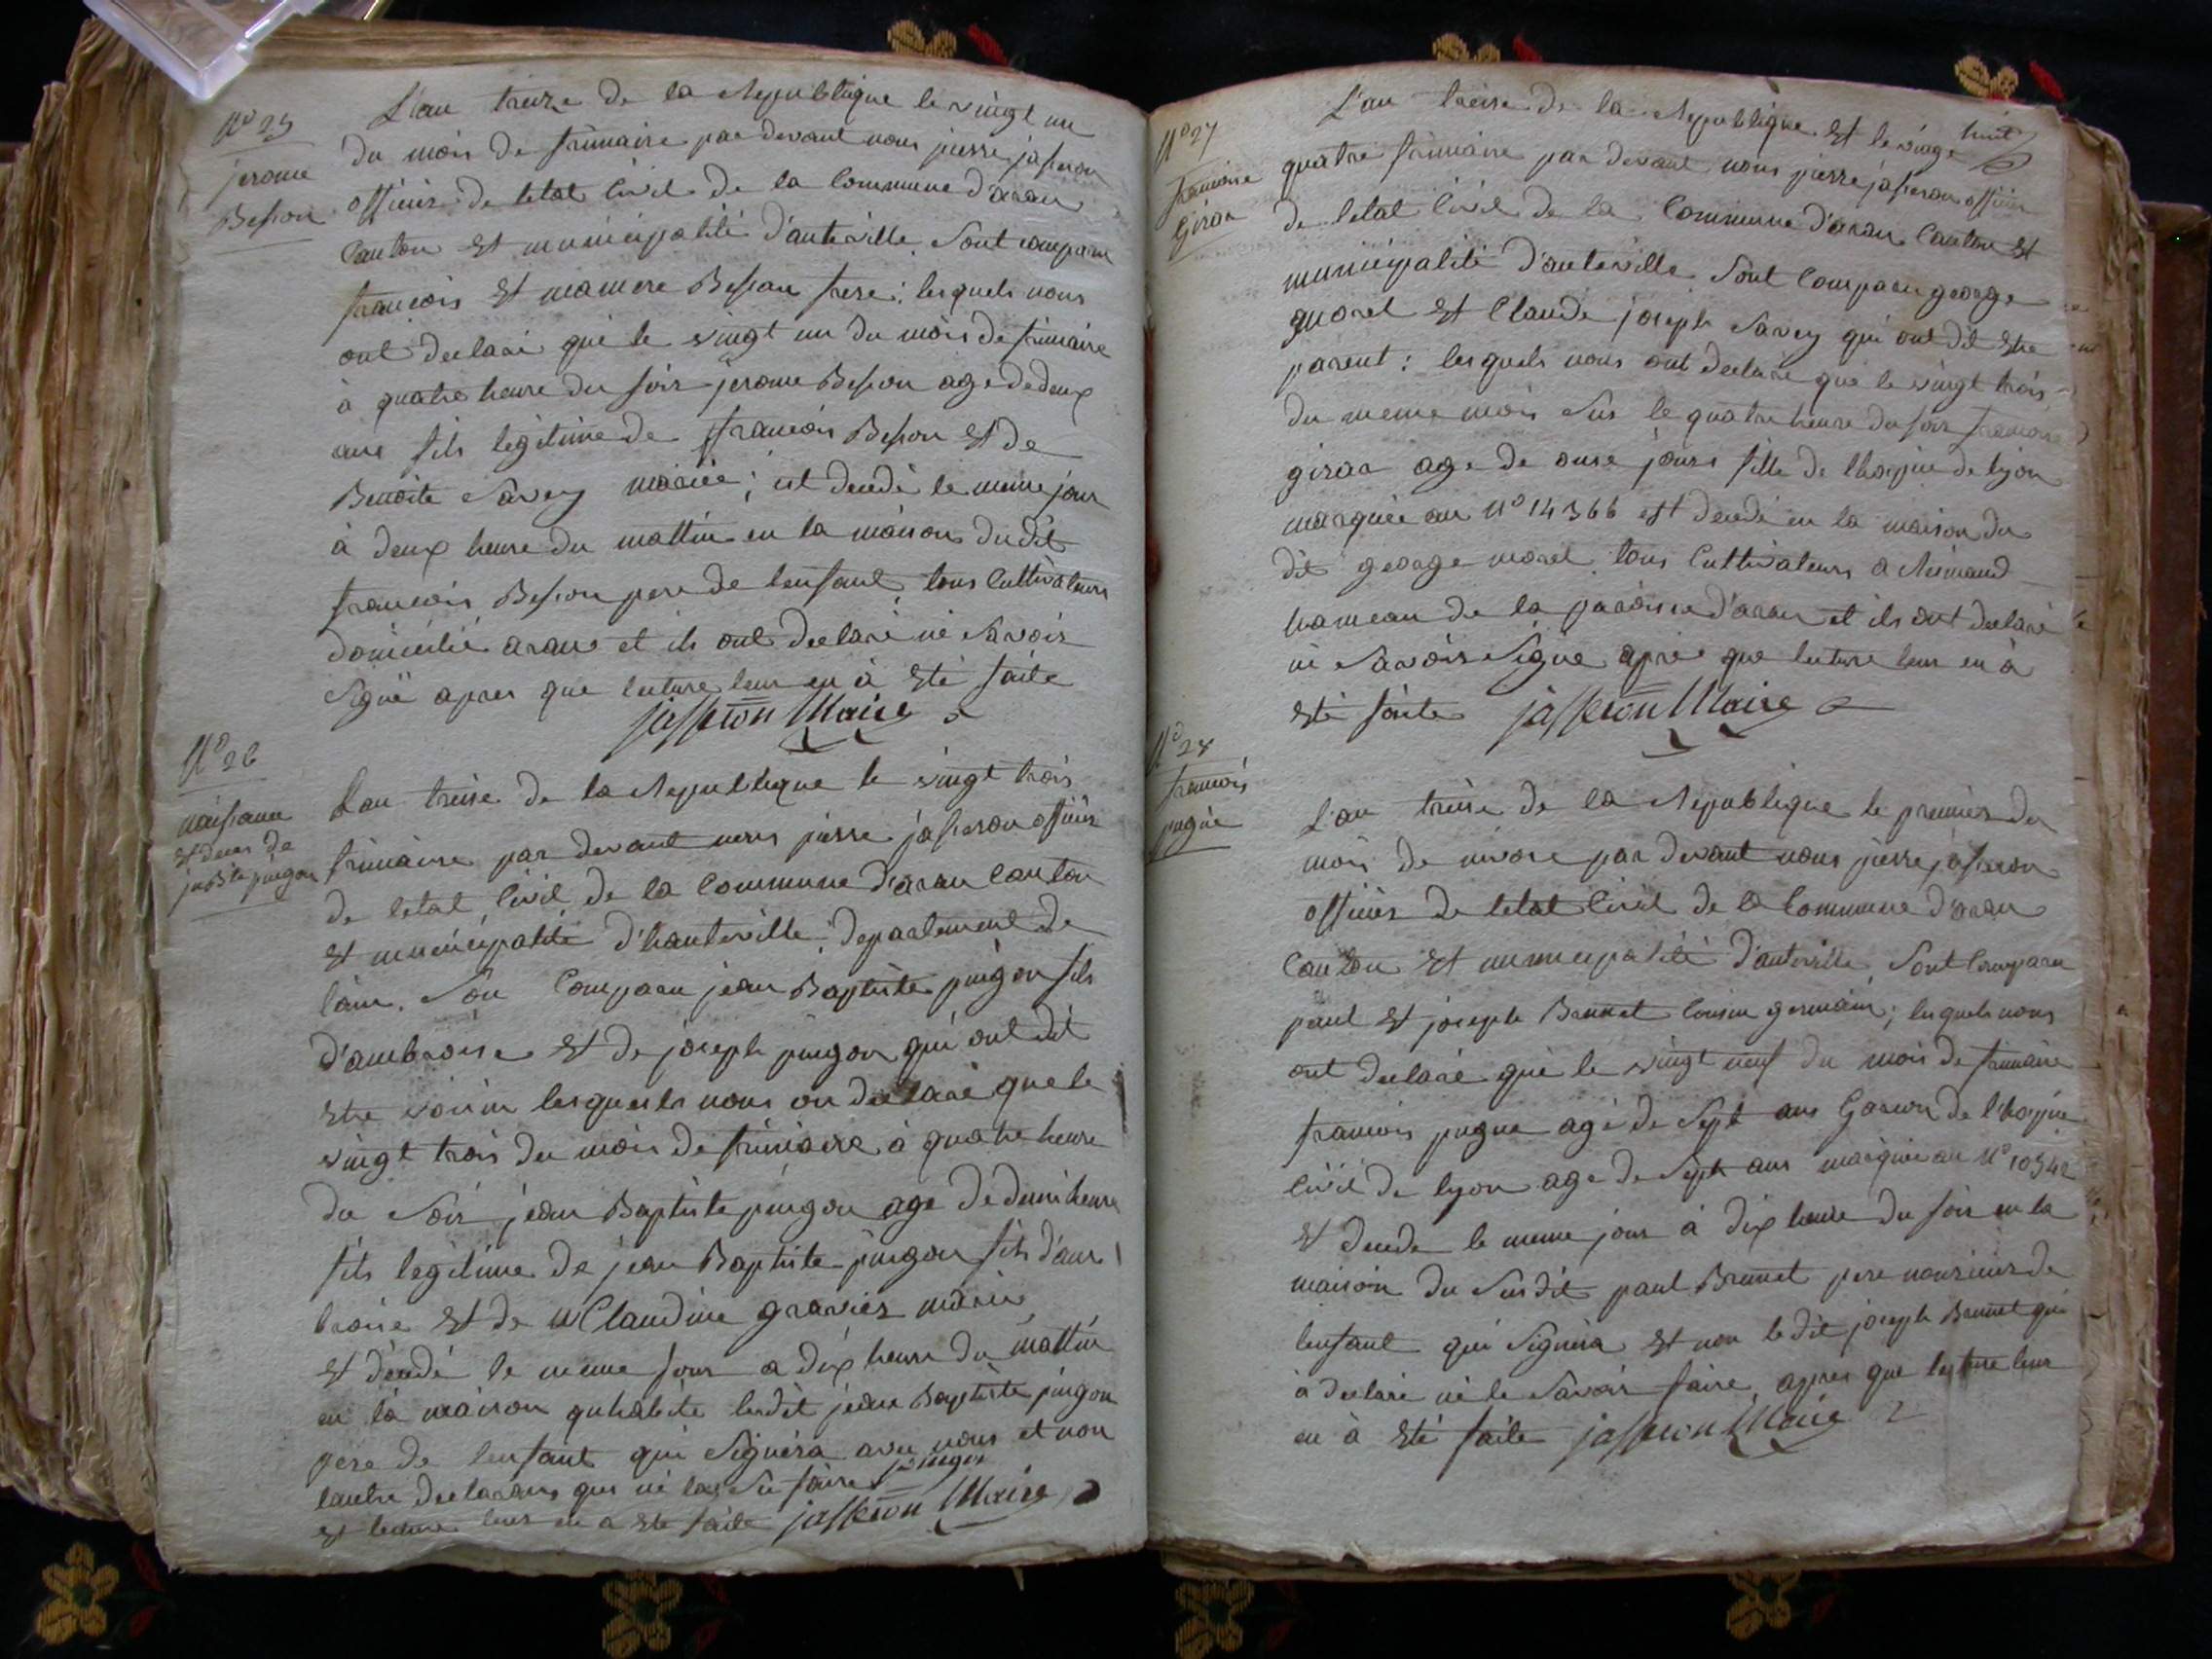 N° 25
jerome
Besson
L'an treize de la Republique le vingt un
du mois de frimaire par devant nous pierre jasseron
officier de letat Civil de la Commune d'aran
Canton Et municipalité d'auteville Sont comparu
francois Et Besson frere : lesquels nous
ont declaré que le vingt un du mois de frimaire
à quatre heure du soir jerome Besson age de deux
ans fils legitime de francois Besson Et de
Benoite Savey mariée ; est decedé le meme jour
à deux heure du mattin en la maison dudit
francois Besson pere de lenfant tous Cultivateurs
domicilié arans et ils ont declaré né Savoir
Signé apres que lecture leur en à Eté faite
jasseron Maire
N° 26
naissance
Et deces de
pingon
Lan treise de la Republique le vingt trois
frimaire par devant nous pierre jasseron officier
de letat Civil de la Commune d'aran Canton
Et municipalité d'hauteville departement de
lain. Son Comparu jean Baptiste pingon fils
d'ambroise Et de joseph pingon qui ont dit
Etre voisin lesquels nous on declaré que le
vingt trois du mois de frimaire à quatre heure
du Soir jean Baptiste pingon age De demi heure
fils legitime de jean Baptiste pingon fils d'am
broise Et de Claudine gravier mariée
Et décedé le meme jour a dix heure du mattin
en la maison quhabite ledit jean Baptiste pingon
pere de lenfant qui Signera avec nous et non
lautre declarans qui né las Su faire pingon
Et lecture leur en a Eté faite jasseron Maire
huit
N° 27
francoise
Girar
L'an treise de la Republique Et le vingt
quatre frimaire par devant nous pierre jasseron officier
de letat Civil de la Commune d'aran Canton Et
municipalité d'auteville Sont Comparu george
morel Et Claude joseph Savey qui ont dit Etre
parent : lesquels nous ont declaré que le vingt trois
du meme mois Sur le quatre heure du soir francoise
girar age de onse jours fille de lhospice de lyon
marquée au N° 14366 est decedé en la maison du
dit george morel tous Cultivateurs a
hameau de la paroisse d'aran et ils ont declaré
né Savoir Signé aprés que lecture leur en à
Eté faite jasseron Maire
N° 28
francois
pugne
L'an treise de la Republique le premier du
mois de nivose par devant nous pierre jasseron
officier de letat Civil de la Commune d'aran
Canton Et municipalité d'auteville Sont Comparu
paul Et joseph Brunet Cousin germain ; lesquels nous
ont declaré que le vingt neuf du mois de frimaire
francois pugne agé de Sept ans Garcon de l'hospice
Civil de lyon age de Sept ans marquée au N° 10542
Et decede le meme jour à dix heure du soir en la
maison du Susdit paul Brunet pere nouricier de
lenfant qui Signera Et non le dit joseph Brunet qui
à declaré né le Savoir faire aprés que lecture leur
en à Eté faite jasseron Maire